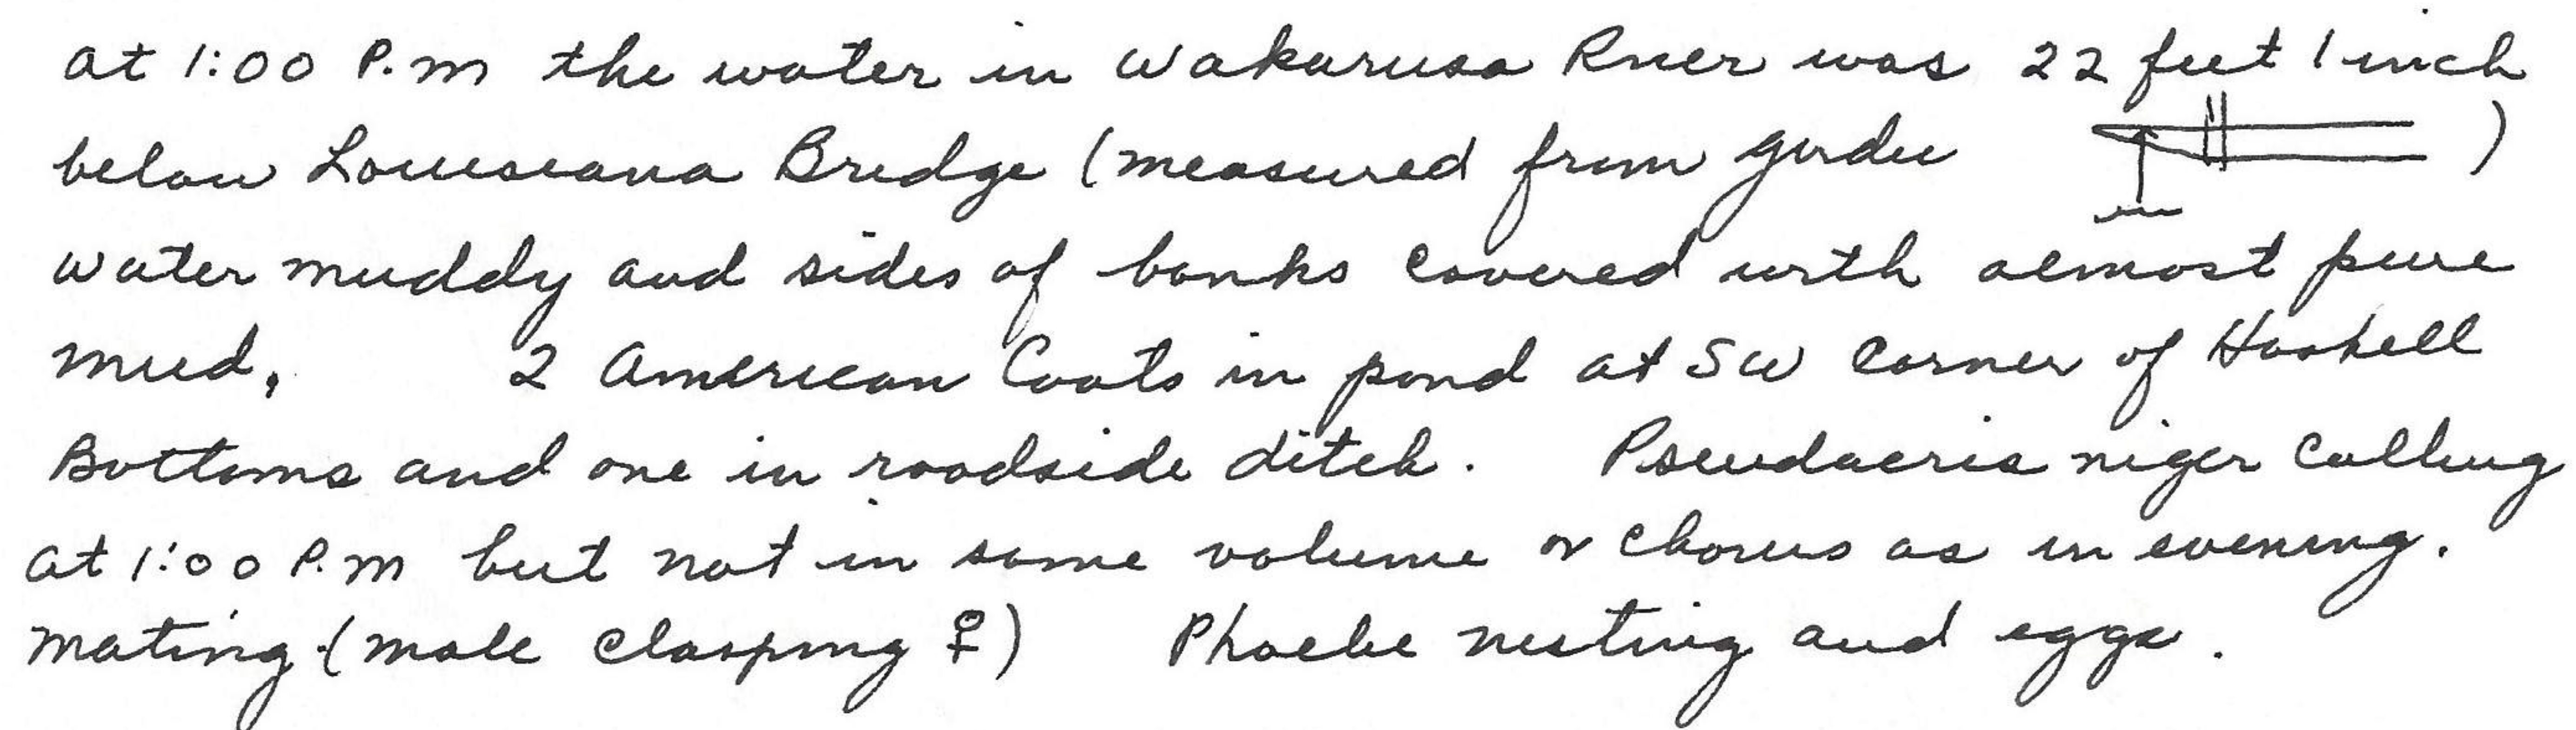 at 1:00 P.m the water in Wakarusa River was 22 feet 1 inch
below Louiseana Bridge (measured from girder )
water muddy and sides of banks covered with almost pure
mud. 2 American Coots in pond at SW Corner of Haskell
Bottoms and one in roadside ditch. Pseudacris niger Calling
at 1:00 P.m but not in same volume or Chorus as in evening.
mating (male clasping ♀) Phoebe nesting and eggs.